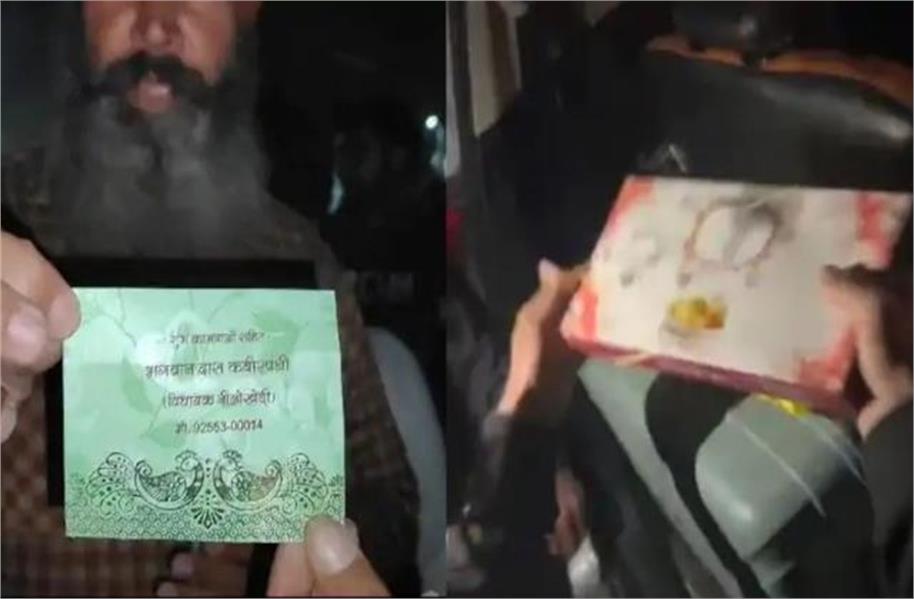 शुभ कामनाओं सहित
भगवान दास कबीरपंथी
(विधायक नीलोखेड़ी)
मो. 92553-00014